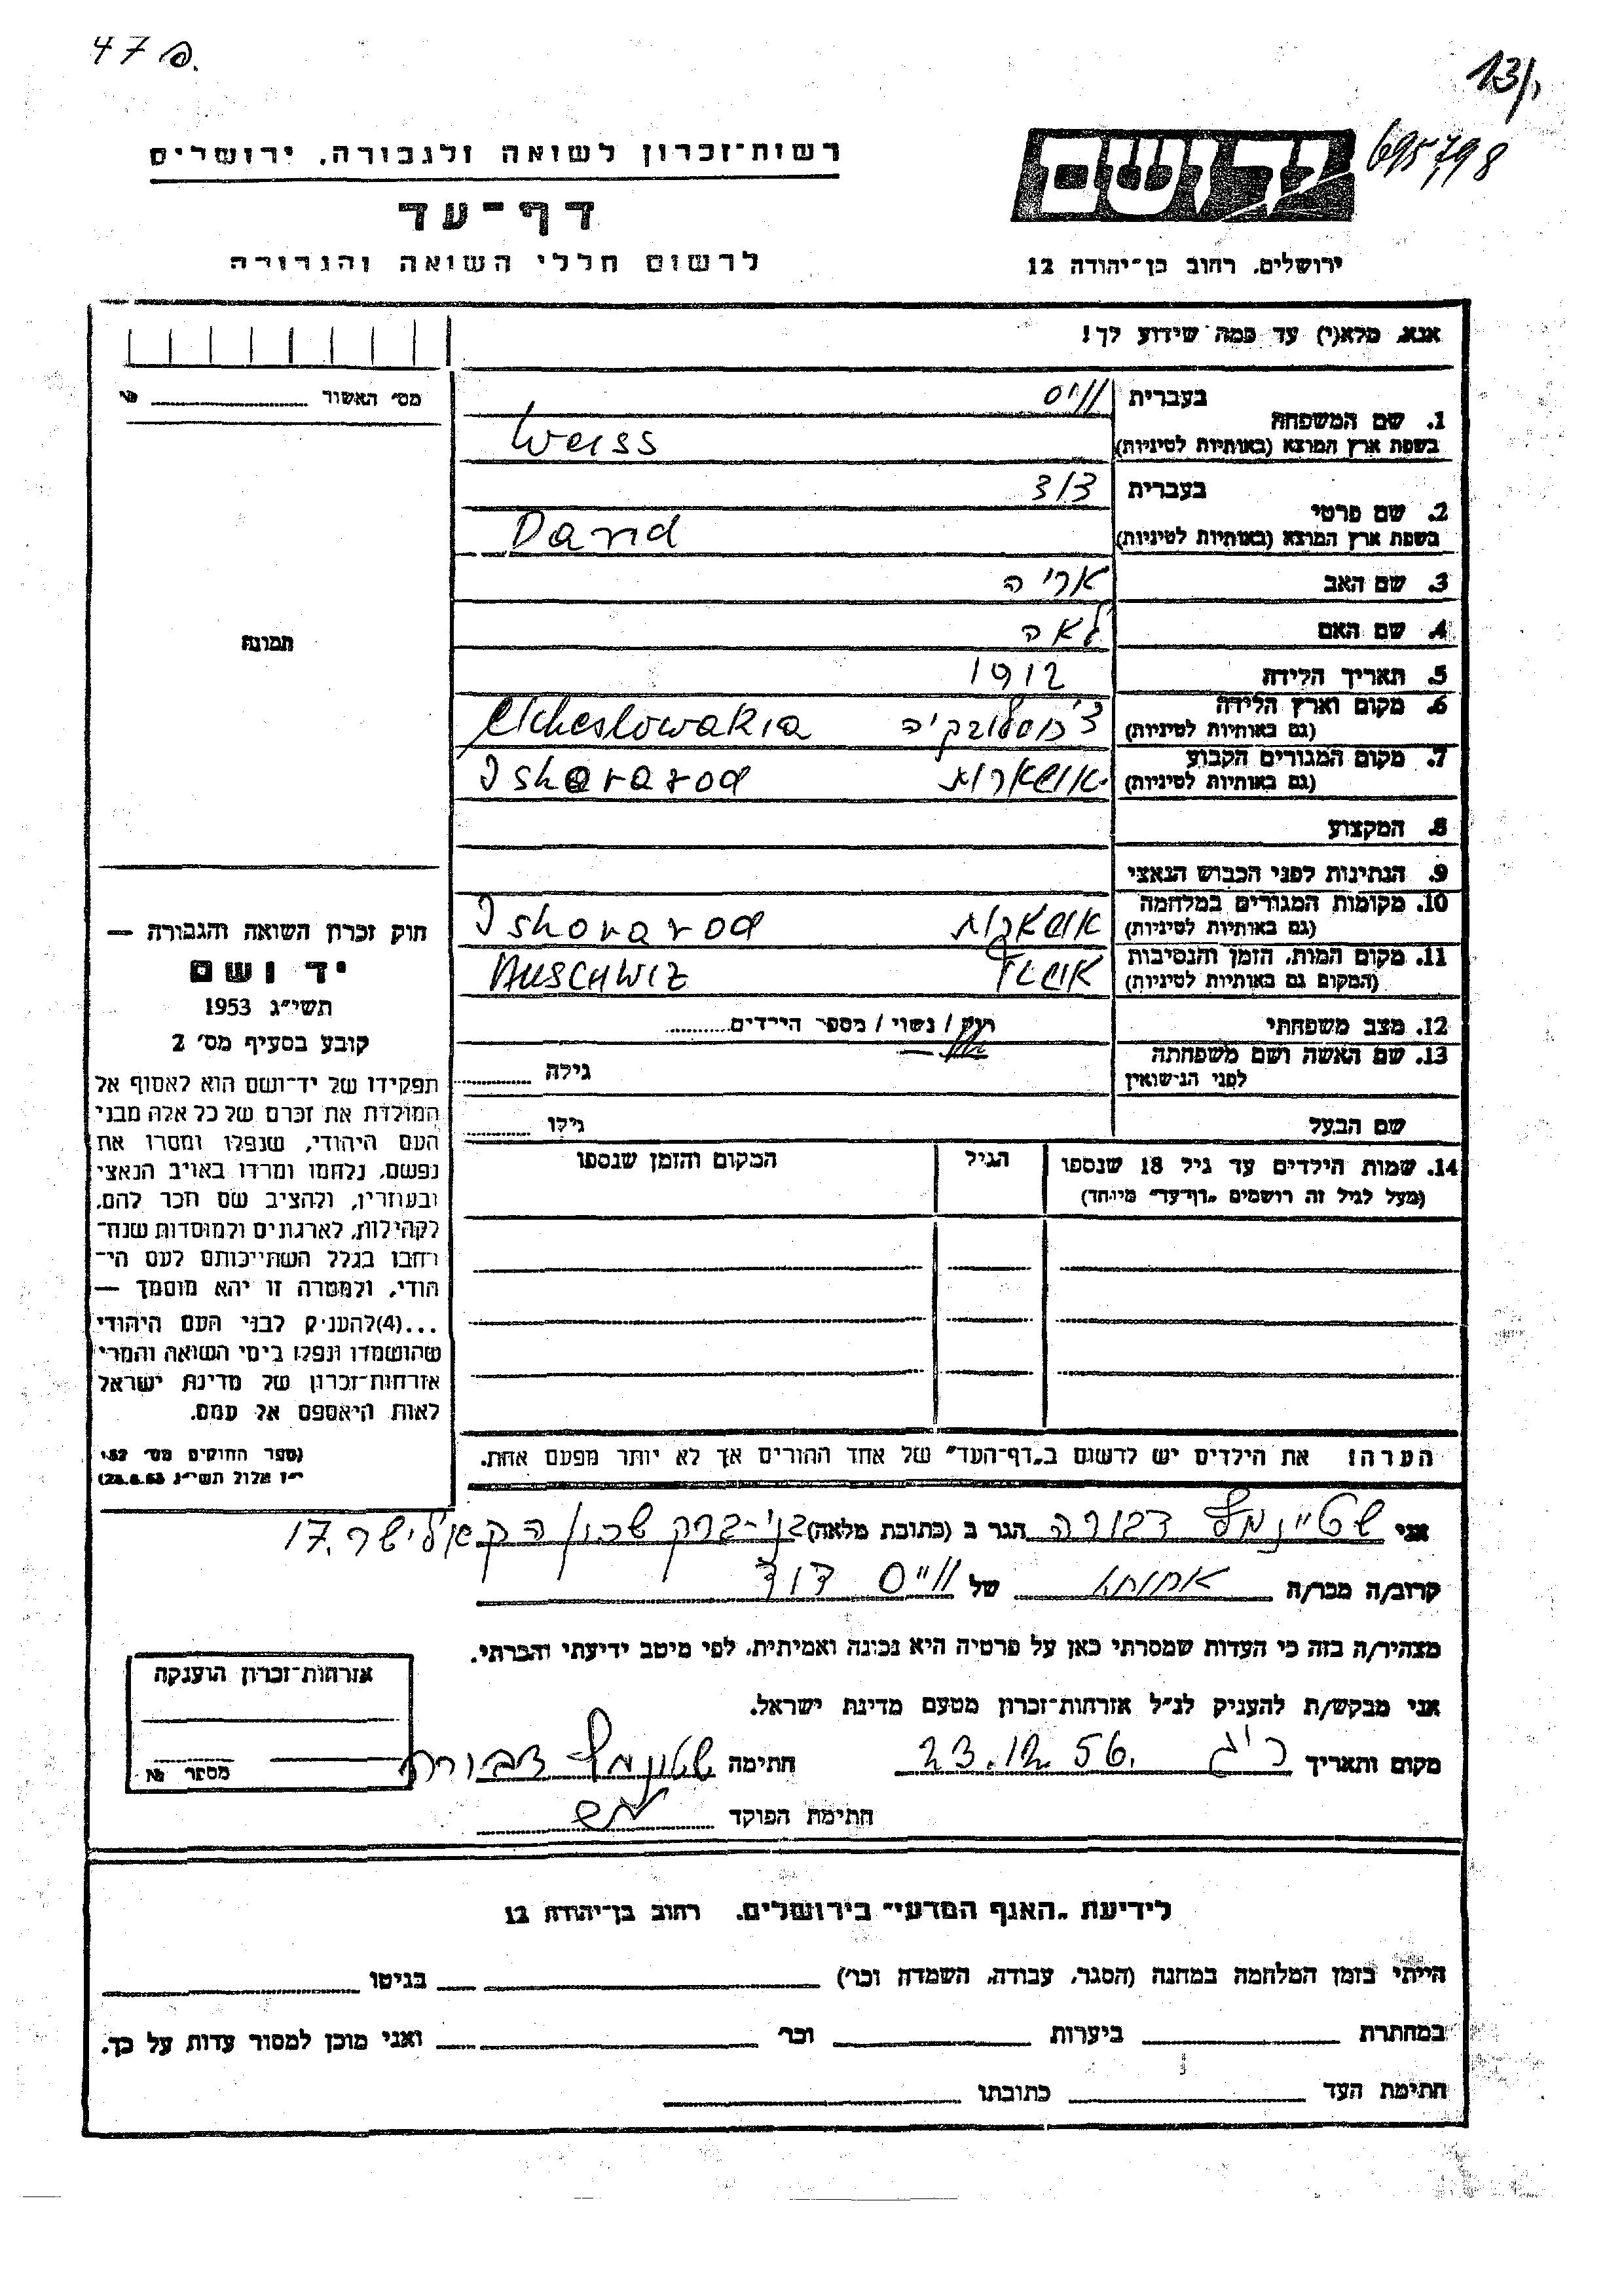 47 פ.
13/1
695798
רשות־זכרון לשואה ולגבורה, ירושלים
יד ושם
דף־עד
לרשום חללי השואה והגבורה
ירושלים, רחוב בן־יהודה 12
אנא, מלא(י) עד כמה שידוע לך!
מס׳ האשור
1. שם המשפחה
בעברית ווייס
בשפת ארץ המוצא (באותיות לטיניות) Weiss
2. שם פרטי
בעברית דוד
בשפת ארץ המוצא (באותיות לטיניות) David
3. שם האב אריה
4. שם האם לאה
תמונה
5. תאריך הלידה 1912
6. מקום וארץ הלידה
(גם באותיות לטיניות) צ'כוסלובקיה
7. מקום המגורים הקבוע
(גם באותיות לטיניות)
8. המקצוע
9. הנתינות לפני הכבוש הנאצי
10. מקומות המגורים במלחמה
(גם באותיות לטיניות)
11. מקום המות, הזמן והנסיבות
(המקום גם באותיות לטיניות) AUSCHWIZ
12. מצב משפחתי רווק / נשוי / מספר הילדים
13. שם האשה ושם משפחתה
לפני הנישואין גילה
שם הבעל גילו
14. שמות הילדים עד גיל 18 שנספו הגיל המקום והזמן שנספו
(מעל לגיל זה רושמים „דף־עד״ מיוחד)
חוק זכרון השואה והגבורה —
יד ושם
תשי״ג 1953
קובע בסעיף מס׳ 2
תפקידו של יד־ושם הוא לאסוף אל
המולדת את זכרם של כל אלה מבני
העם היהודי, שנפלו ומסרו את
נפשם, נלחמו ומרדו באויב הנאצי
ובעוזריו, ולהציב שם וזכר להם,
לקהילות, לארגונים ולמוסדות שנח־
רבו בגלל השתייכותם לעם הי־
הודי, ולמטרה זו יהא מוסמך —
...(4) להעניק לבני העם היהודי
שהושמדו ונפלו בימי השואה והמרי
אזרחות־זכרון של מדינת ישראל
לאות היאספם אל עמם.
(ספר החוקים מס׳ 132,
י״ז אלול תשי״ג 28.8.53)
הערה! את הילדים יש לרשום ב„דף־העד״ של אחד ההורים אך לא יותר מפעם אחת.
אני דבורה הגר ב (כתובת מלאה) בני-ברק שכון 17.
קרוב/ה מכר/ה אחותו של ווייס דוד
מצהיר/ה בזה כי העדות שמסרתי כאן על פרטיה היא נכונה ואמיתית, לפי מיטב ידיעתי והכרתי.
אני מבקש/ת להעניק לנ״ל אזרחות־זכרון מטעם מדינת ישראל.
מקום ותאריך 23.12.56. חתימה דבורה
חתימת הפוקד
אזרחות־זכרון הוענקה
מספר №
לידיעת „האגף המדעי״ בירושלים, רחוב בן־יהודה 12
הייתי בזמן המלחמה במחנה (הסגר, עבודה, השמדה וכו׳) בגיטו
במחתרת ביערות וכו׳ ואני מוכן למסור עדות על כך.
חתימת העד כתובתו